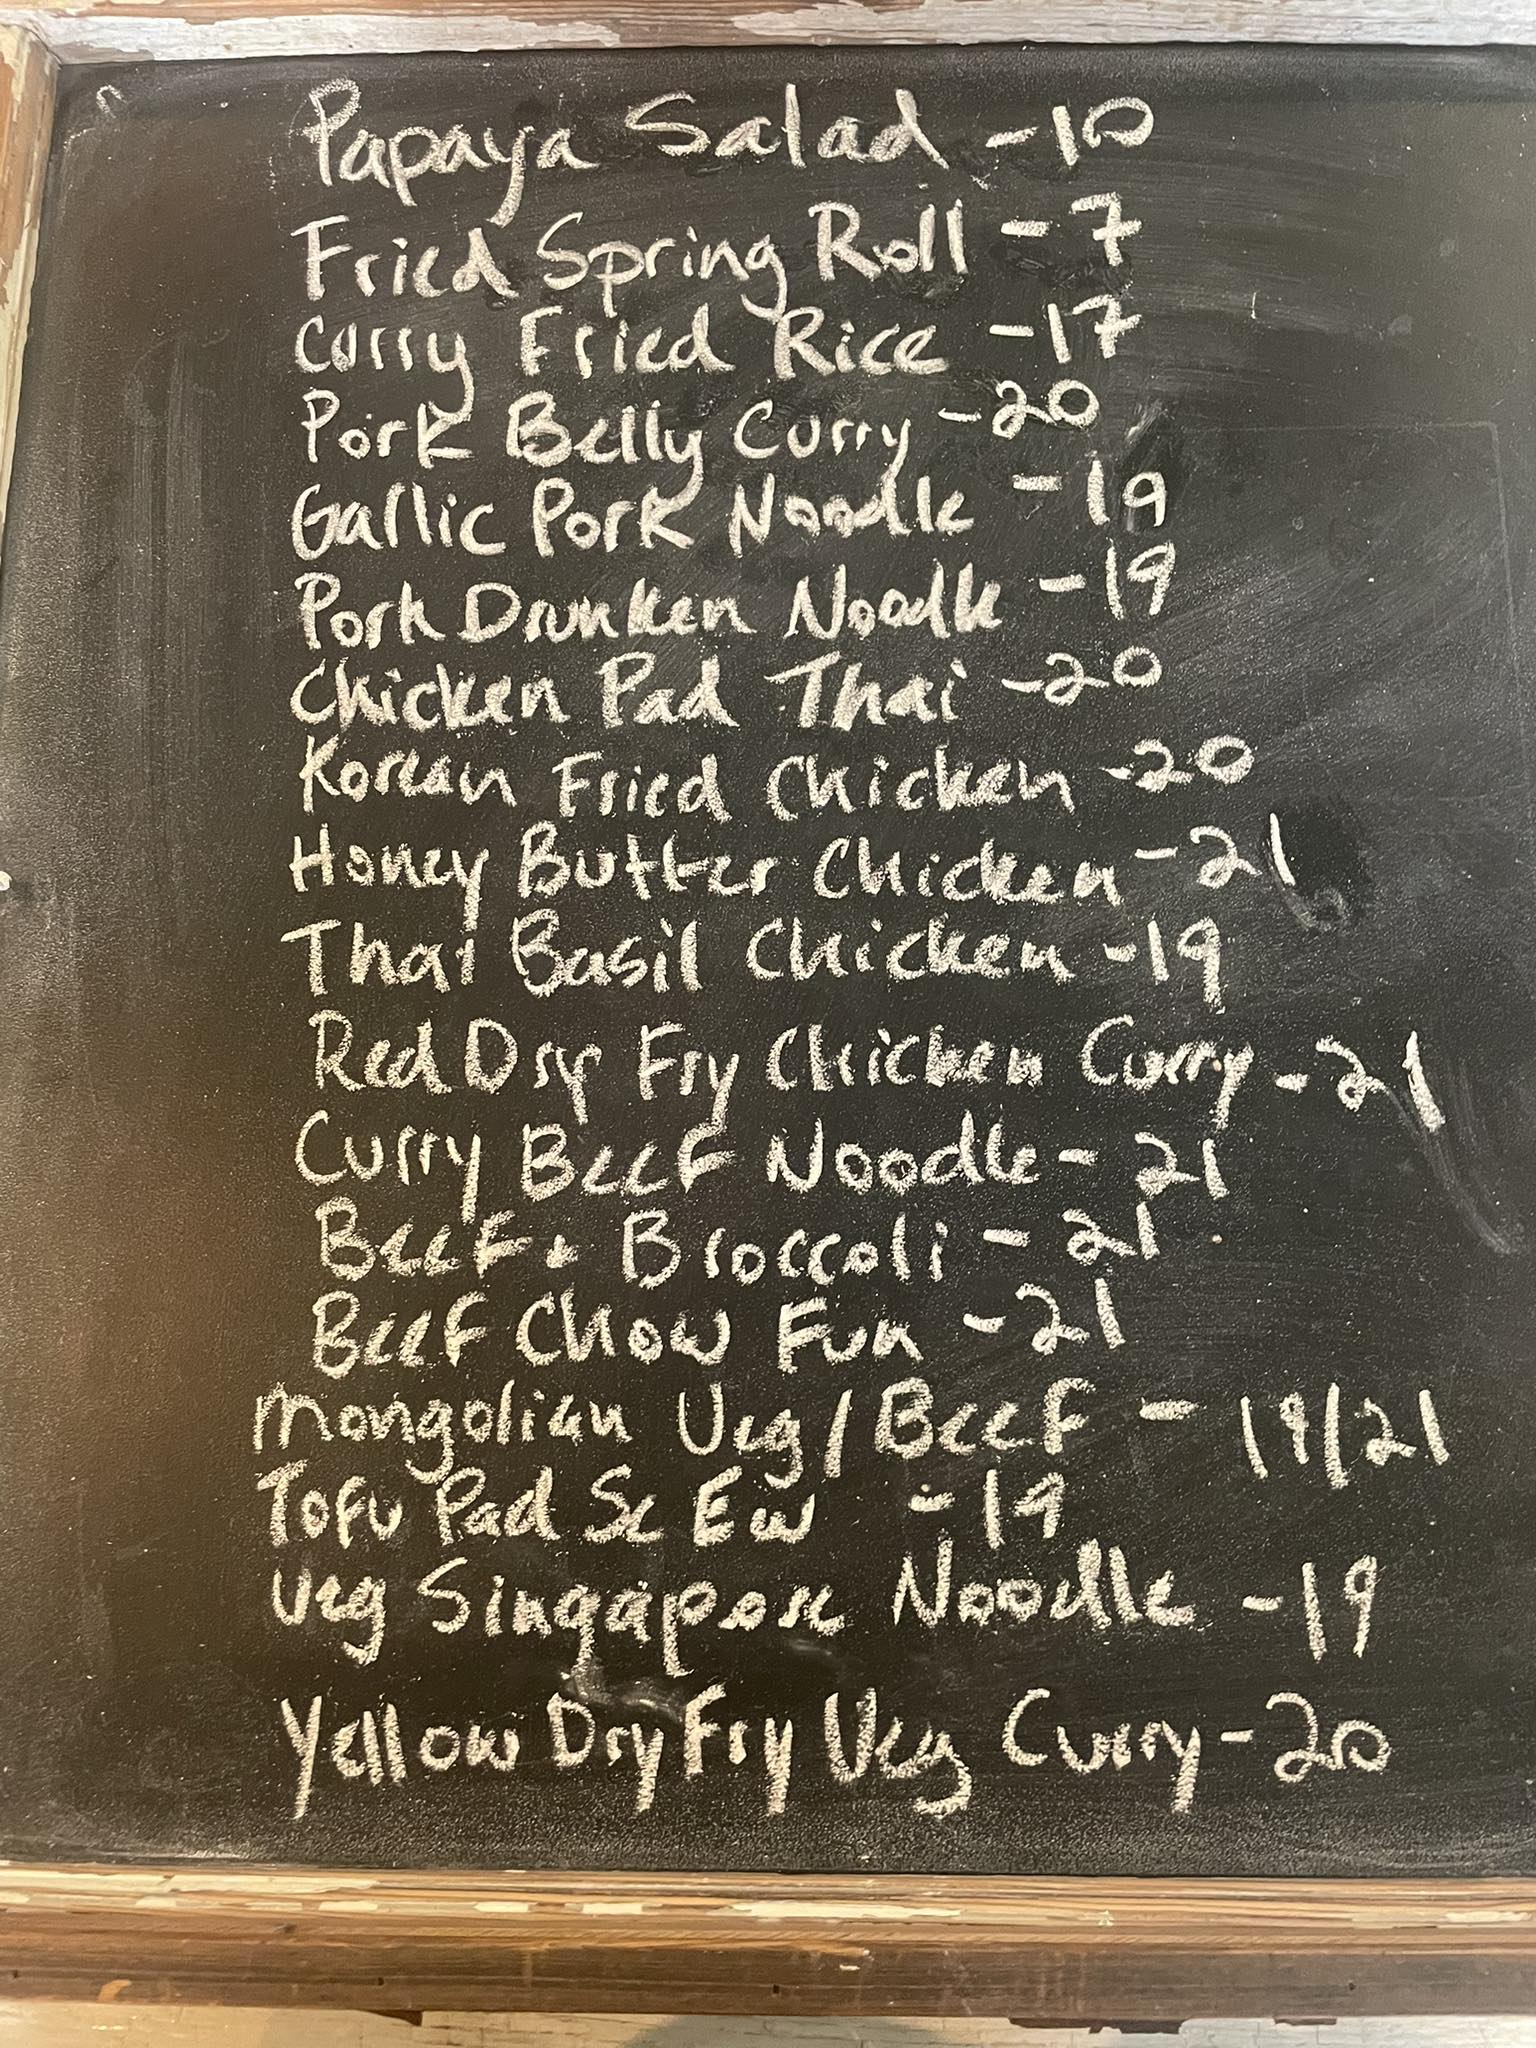 Papaya Salad - 10
Fried Spring Roll - 7
Curry Fried Rice - 17
Pork Belly Curry - 20
Garlic Pork Noodle - 19
Pork Drunken Noodle - 19
Chicken Pad Thai - 20
Korean Fried Chicken - 20
Honey Butter Chicken - 21
Thai Basil Chicken - 19
Red Dry Fry Chicken Curry - 21
Curry Beef Noodle - 21
Beef + Broccoli - 21
Beef Chow Fun - 21
Mongolian Veg / Beef - 19/21
Tofu Pad Se Ew - 19
Veg Singapore Noodle - 19
Yellow Dry Fry Veg Curry - 20